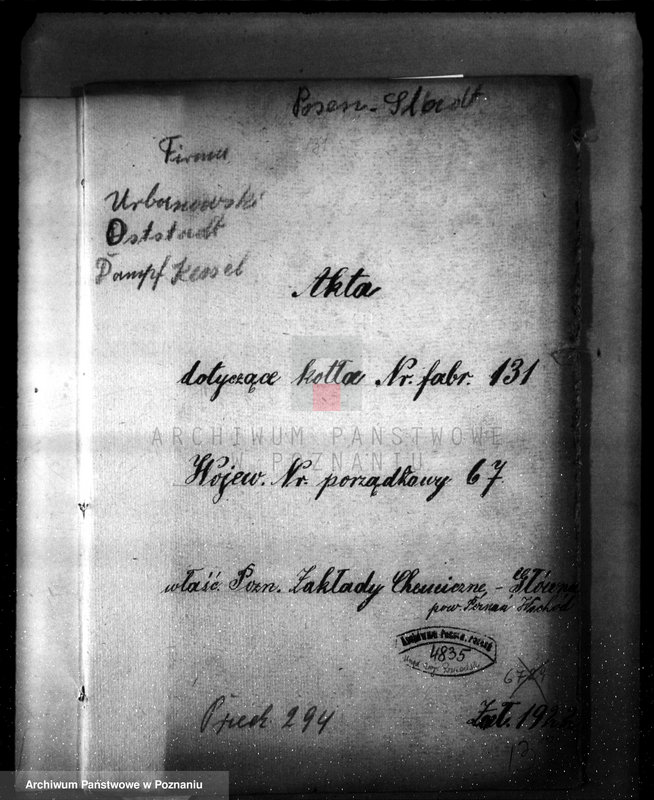 Posen-Stadt
Firma
Urbanowski
Oststadt
Dampf Kessel
Akta
dotyczące kotła Nr. fabr. 131
ARCHIWUM PAŃSTWOWE
W POZNANIU
Wojew. Nr. porządkowy 67
właść. Pozn. Zakłady Chemiczne - Główna
pow. Poznań Wschód
4835
294
Archiwum Państwowe w Poznaniu